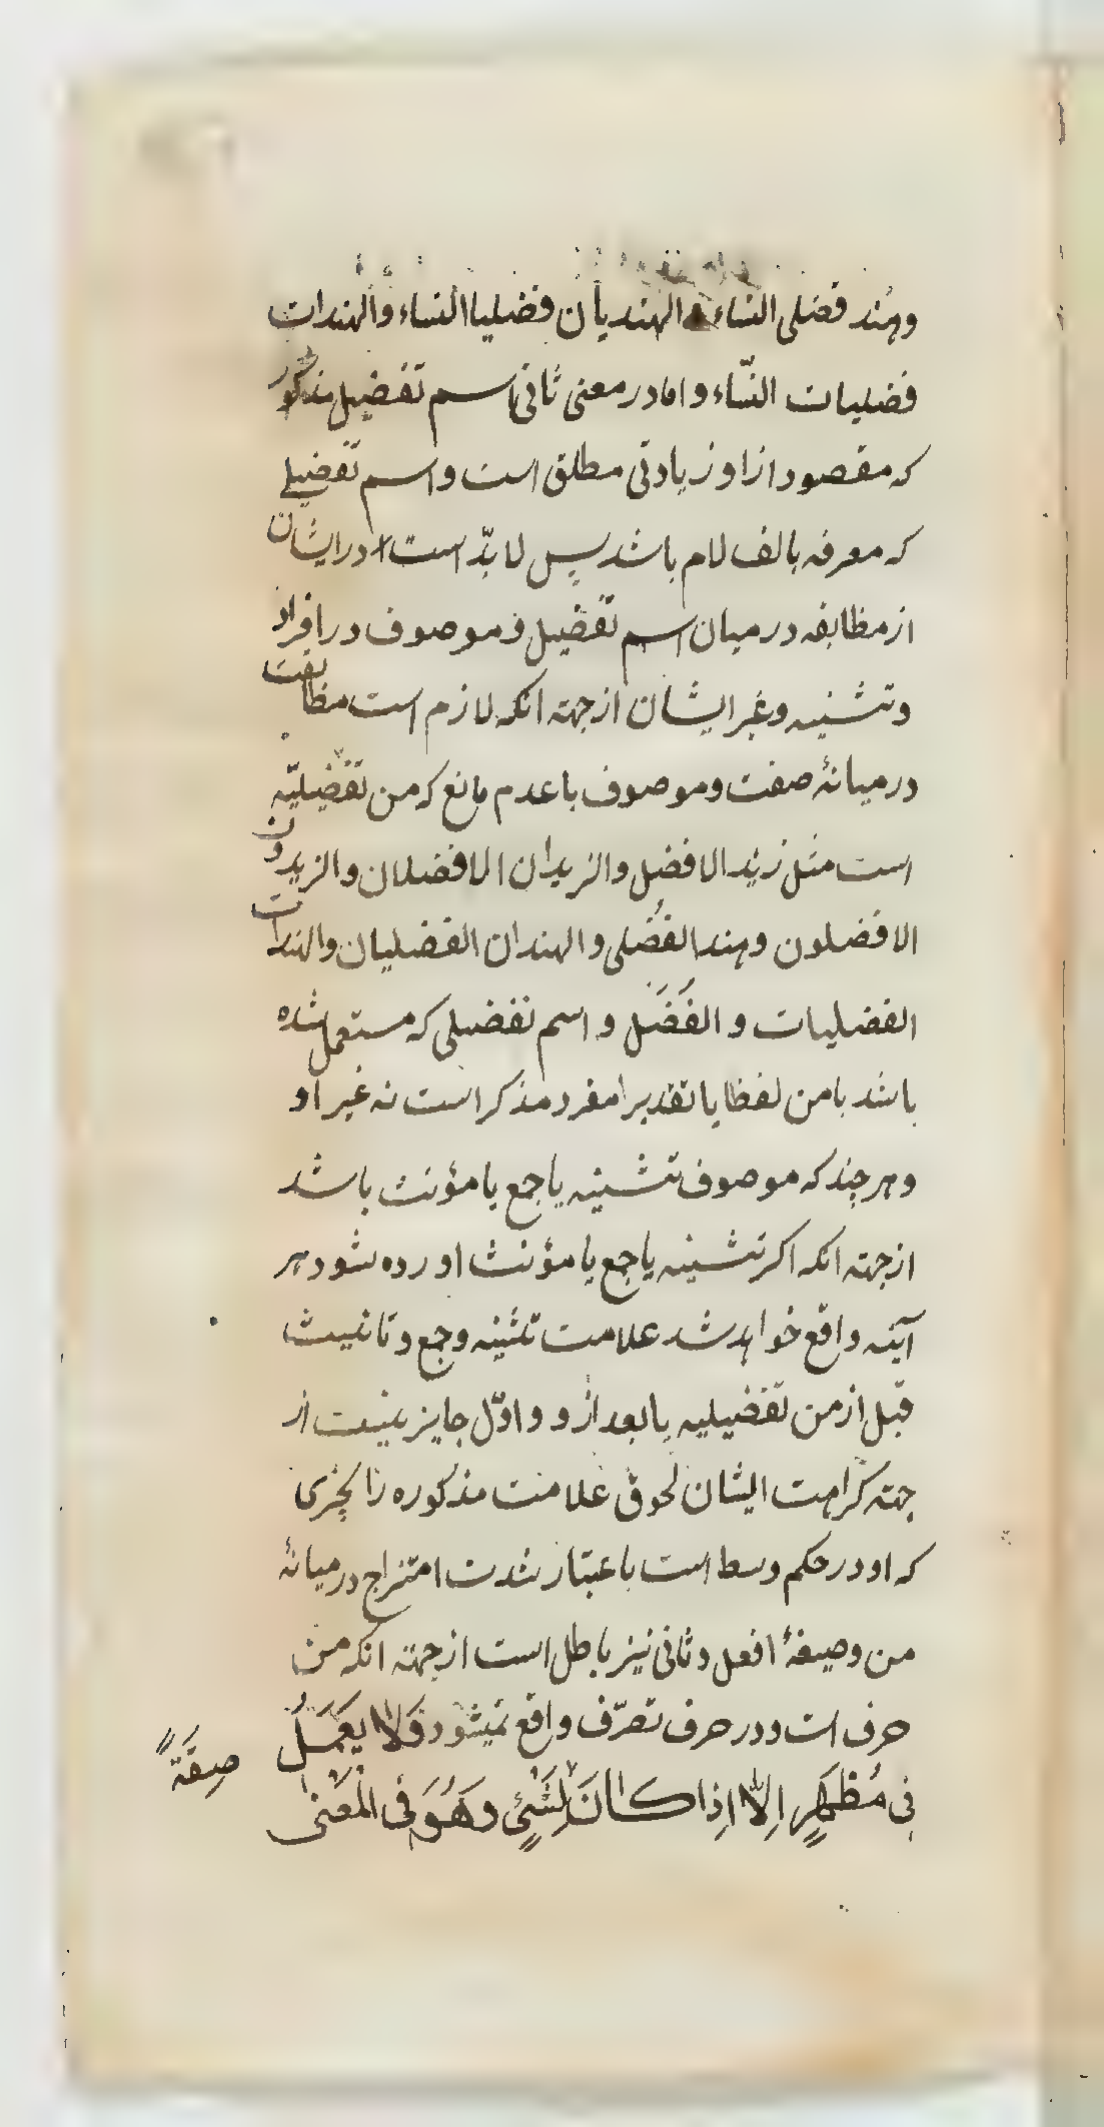 وهند فضلی النساء والهندیان فضلیا النساء والهندات
فضلیات النّساء و اما در معنی ثانی اسم تفضیل مذکور
که مقصود از او زیادتی مطلق است و اسم تفضیلے
که معرفه بالف لام باشد پس لا بدّ است در ایشان
از مطابقه در میان اسم تفضیل و موصوف در افراد
و تثنیه و غیر ایشان از جهته انکه لازم است مطابقت
در میانهٔ صفت و موصوف با عدم مانع که من تفضیلیّه
است مثل زید الافضل والزیدان الافضلان والزیدون
الافضلون وهند الفُضلی والهندان الفضلیان والهندات
الفضلیات و الفُضَل و اسم تفضیلی که مستعمل شده
باشد با من لفظا یا تقدیرا مفرد مذکر است نه غیر او
و هر چند که موصوف تثنیه یا جمع یا مؤنث باشد
از جهته انکه اکر تثنیه یا جمع یا مؤنث اورده شود هر
آینه واقع خواهد شد علامت تثنیه و جمع و تانیث
قبل از من تفضیلیه یا بعد ازو و اوّل جایز نیست از
جهته کراهت ایشان لحوق علامت مذکوره را بجزی
که او در حکم وسط است باعتبار شدت امتزاج در میانهٔ
من و صیغهٔ افعل و ثانی نیز باطل است از جهته انکه من
حرف است و در حرف تصرّف واقع نمیشود فَلا یَعْمَلُ
فی مُظهَرٍ اِلّا اِذا کانَ لِشَیْءٍ وَهُوَ فی الْمَعْنی
صِفَةً